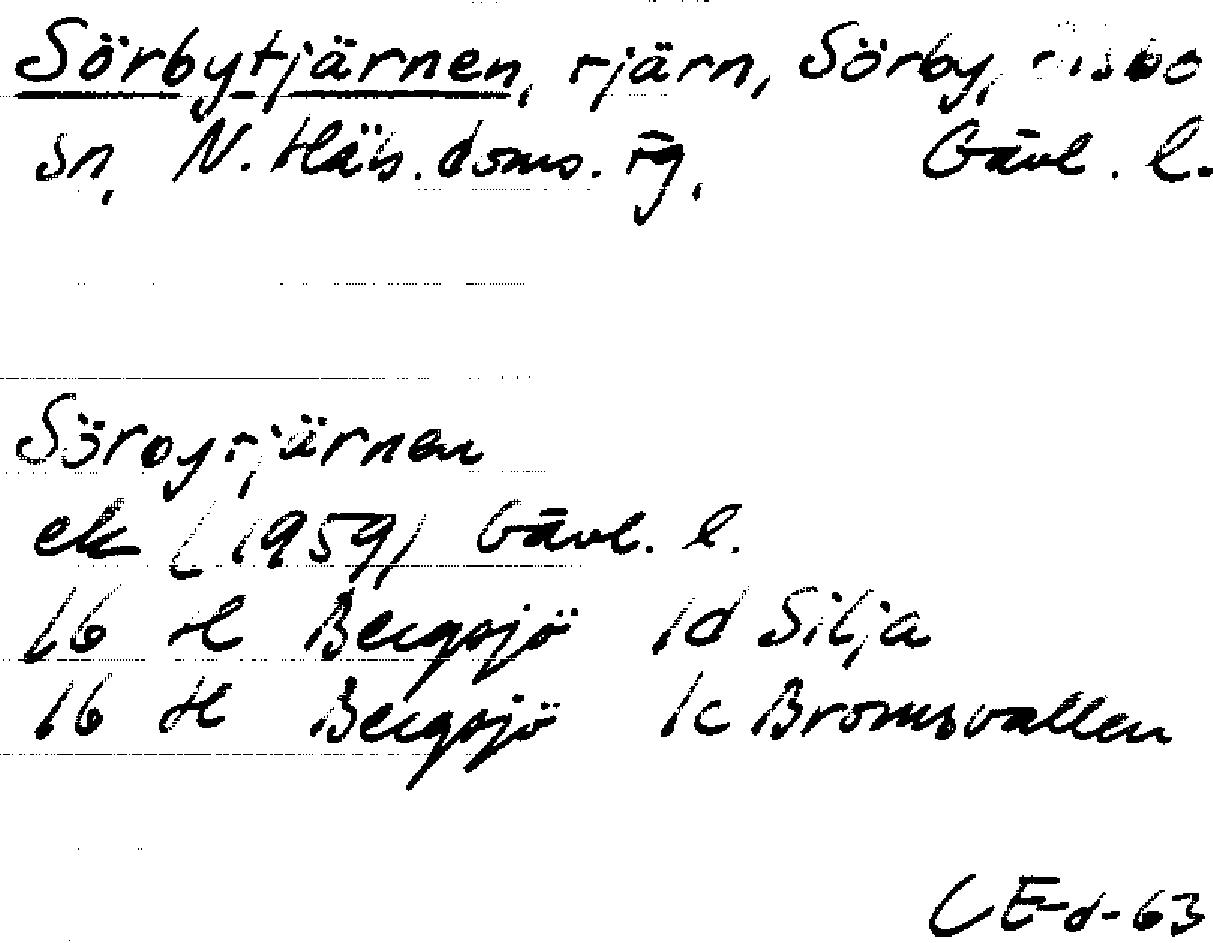 Sörbytjärnen, tjärn, Sörby,
sn, N. Häls. doms. tg, Gävl. l.
Sörbytjärnen
ek (1959) Gävl. l.
16 H Bergsjö 1d Silja
16 H Bergsjö 1c Bromsvallen
CE-d-63